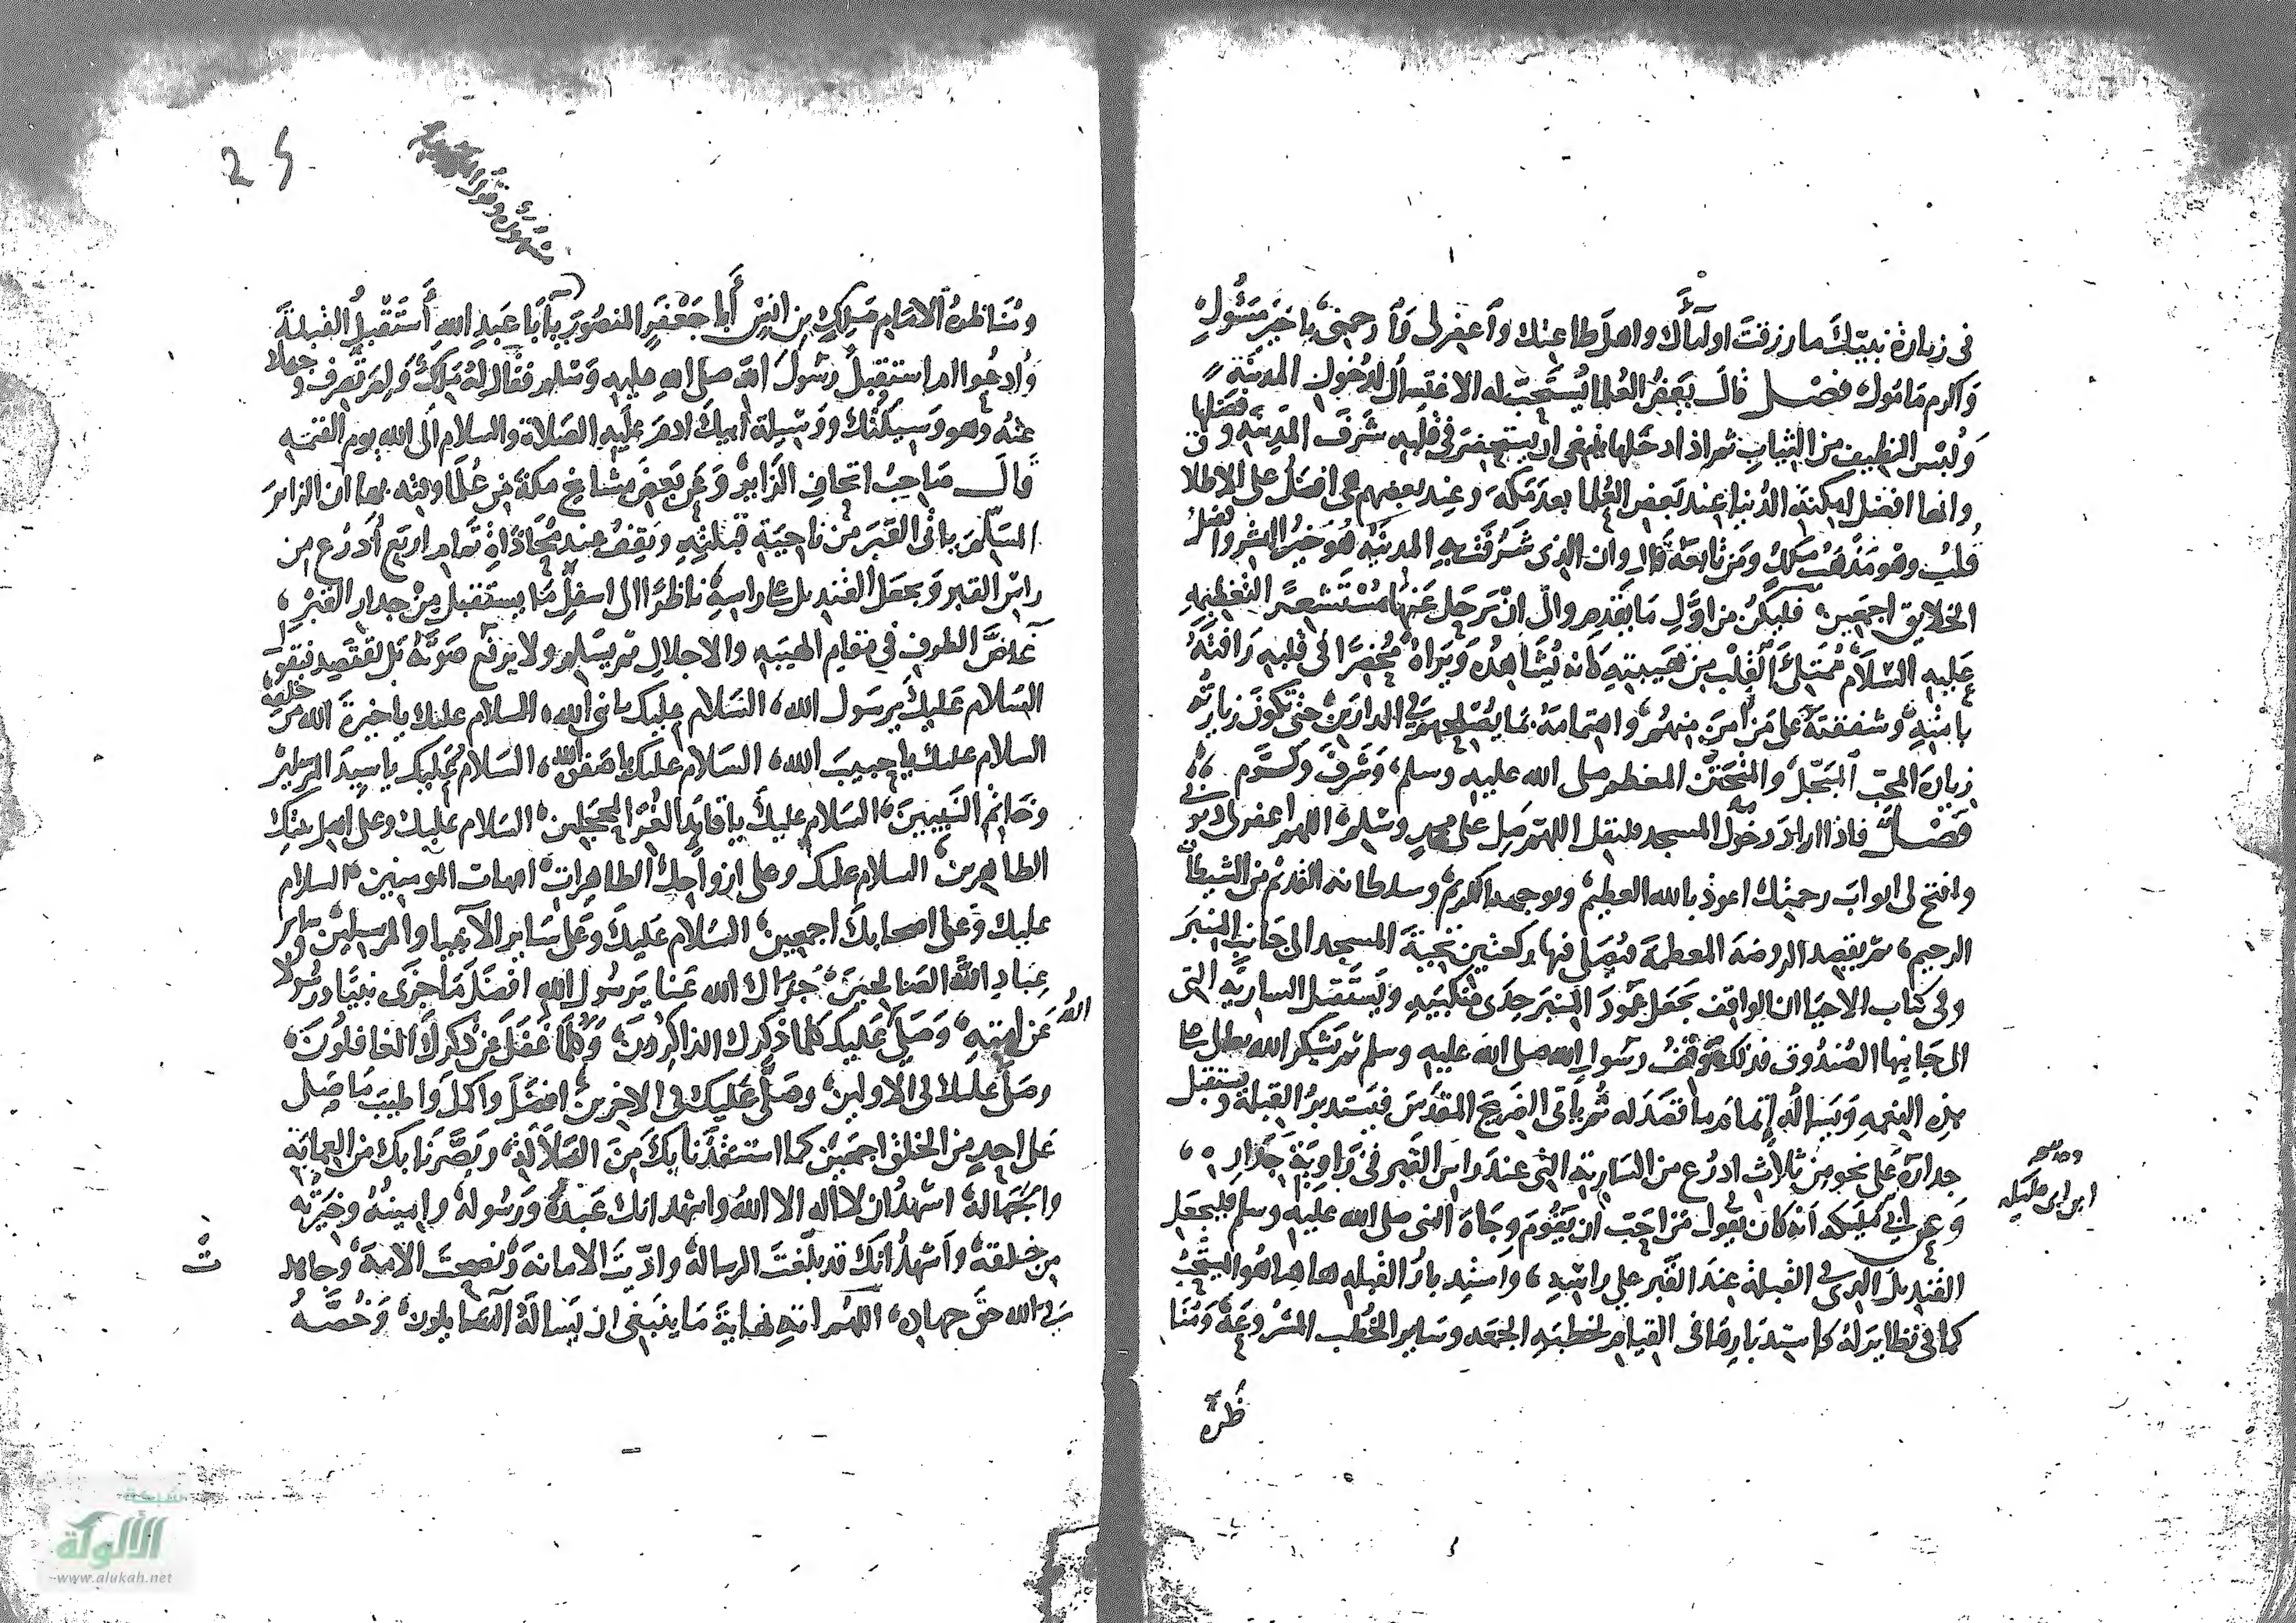 في زيارة نبيك ما رزقت اولياءك واهل طاعتك واغفر لي وارحمني يا خير مسئول
واكرم مامول فصل قال بعض العلما يستحب له الاغتسال لدخول المدينة
ولبس النظيف من الثياب ثم اذا دخلها فينبغي ان يستحضر في قلبه شرف المدينة وفضلها
وانها افضل امكنة الدنيا عند بعض العلما بعد مكة وعند بعضهم هي افضل على الاطلاق
قلت وهو مذهب ملك ومن تابعه قال وان الذي شرفت به المدينة هو خير البشر وافضل
الخلايق اجمعين فليكن من اول ما يقدم والى ان يرحل عنها مستشعرا لتعظيمه
عليه السلام ممتلئ القلب من هيبته كانه يشاهده ويراه محضرا الى قلبه رافته
بامته وشفقته على من امن منهم واهتمامه بما يصلحهم في الدارين حتى تكون زيارته
زيارة المحب المبجل المعظم صلى الله عليه وسلم وشرف وكرم
فصل فاذا اراد دخول المسجد فليقل اللهم صل على محمد وسلم اللهم اغفر لي ذنوبي
وافتح لي ابواب رحمتك اعوذ بالله العظيم وبوجهه الكريم وسلطانه القديم من الشيطان
الرجيم ثم يقصد الروضة المعظمة فيصلي فيها ركعتين تحية المسجد الى جانب المنبر
وفي كتاب الاحيا ان الواقف يجعل عمود المنبر حذى منكبيه ويستقبل السارية التي
الى جانبها الصندوق فذلك موقف رسول الله صلى الله عليه وسلم ثم يشكر الله تعالى على
هذه النعمه ويساله اتمام ما قصد له ثم ياتي الضريح المقدس فيستدبر القبلة ويستقبل
جداره على نحو من ثلاث اذرع من السارية التي عند راس القبر في زاوية جداره
وعن ابن ابي مليكه انه كان يقول من احب ان يقوم وجاه النبي صلى الله عليه وسلم فليجعل
القنديل الذي في القبلة عند القبر على راسه واستدبار القبله هاهنا هو المستحب
كما في نظايره كاستدبارها في القيام لخطبة الجمعه وساير الخطب المشروعة ومنا
ظرة
ابن ابي مليكه
25
ومناظرة الامام ملك بن انس ابا جعفر المنصور يا ابا عبد الله أستقبل القبلة
وادعوا ام استقبل رسول الله صلى الله عليه وسلم فقال له ملك ولم تصرف وجهك
عنه وهو وسيلتك ووسيلة ابيك ادم عليه الصلاة والسلام الى الله يوم القيمه
قال صاحب اتحاف الزاير وعن بعض مشايخ مكة من ان الزاير
المسلم ياتي القبر من ناحية قبلته ويقف عند محاذاة تمام اربع أذرع من
راس القبر ويجعل القنديل على راسه ناظرا الى اسفل ما يستقبل من جدار القبر
غاض الطرف في مقام الهيبه والاجلال ثم يسلم ولا يرفع صوته بل يقتصد فيقول
السلام عليك يرسول الله السلام عليك يا نبي الله السلام عليك يا خيرة الله من خلقه
السلام عليك يا حبيب الله السلام عليك يا صفي الله السلام عليك يا سيد المرسلين
وخاتم النبيين السلام عليك يا قايد الغر المحجلين السلام عليك وعلى اهل بيتك
الطاهرين السلام عليك وعلى ازواجك الطاهرات امهات المومنين السلام
عليك وعلى اصحابك اجمعين السلام عليك وعلى ساير الانبيا والمرسلين وساير
عباد الله الصالحين جزاك الله عنا يرسول الله افضل ما جزى نبيا ورسولا
عن امته وصلى عليك كلما ذكرك الذاكرون وكلما غفل عن ذكرك الغافلون
وصلى عليك في الاولين وصلى عليك في الاخرين افضل واكمل واطيب ما صلى
على احد من الخلق اجمعين كما استنقذنا بك من الضلالة وبصرنا بك من العماية
والجهالة اشهد ان لا اله الا الله واشهد انك عبده ورسوله وامينه وخيرته
من خلقه واشهد انك قد بلغت الرسالة واديت الامانة ونصحت الامة وجاهدت
في الله حق جهاده اللهم اته نهاية ما ينبغي ان يساله السايلون وخصه
شبكة
الألوكة
www.alukah.net